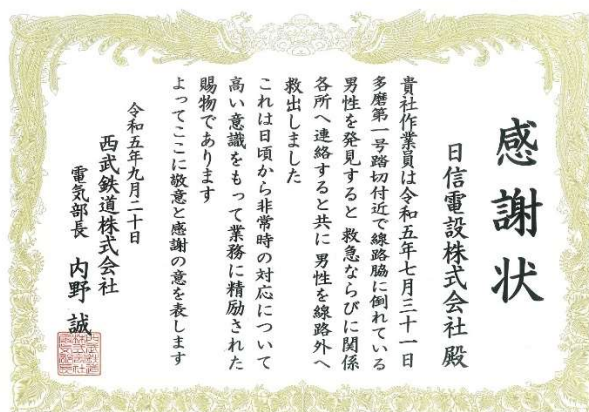 感謝状
日信電設株式会社 殿
貴社作業員は令和五年七月三十一日
多磨第一号踏切付近で線路脇に倒れている
男性を発見すると 救急ならびに関係
各所へ連絡すると共に 男性を線路外へ
救出しました
これは日頃から非常時の対応について
高い意識をもって業務に精励された
賜物であります
よってここに敬意と感謝の意を表します
令和五年九月二十日
西武鉄道株式会社
電気部長 内野 誠